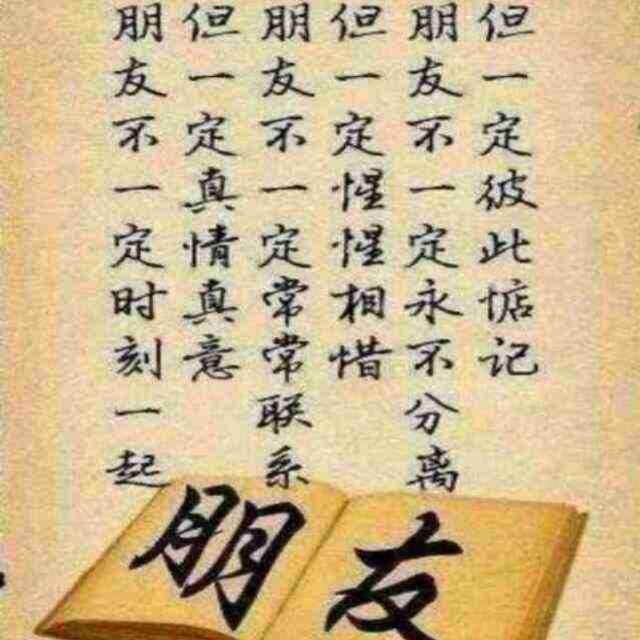 朋友不一定时刻一起
但一定真情真意
朋友不一定常常联系
但一定惺惺相惜
朋友不一定永不分离
但一定彼此惦记
朋友